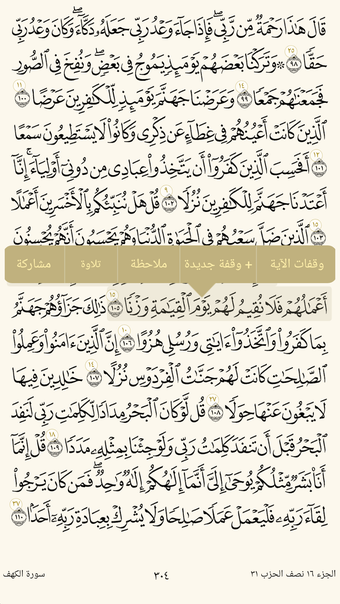 قَالَ هَٰذَا رَحْمَةٌ مِّن رَّبِّي ۖ فَإِذَا جَاءَ وَعْدُ رَبِّي جَعَلَهُ دَكَّاءَ ۖ وَكَانَ وَعْدُ رَبِّي
حَقًّا ٩٨ ۞ وَتَرَكْنَا بَعْضَهُمْ يَوْمَئِذٍ يَمُوجُ فِي بَعْضٍ ۖ وَنُفِخَ فِي الصُّورِ
فَجَمَعْنَاهُمْ جَمْعًا ٩٩ وَعَرَضْنَا جَهَنَّمَ يَوْمَئِذٍ لِّلْكَافِرِينَ عَرْضًا ١٠٠
الَّذِينَ كَانَتْ أَعْيُنُهُمْ فِي غِطَاءٍ عَن ذِكْرِي وَكَانُوا لَا يَسْتَطِيعُونَ سَمْعًا
١٠١ أَفَحَسِبَ الَّذِينَ كَفَرُوا أَن يَتَّخِذُوا عِبَادِي مِن دُونِي أَوْلِيَاءَ ۚ إِنَّا
أَعْتَدْنَا جَهَنَّمَ لِلْكَافِرِينَ نُزُلًا ١٠٢ قُلْ هَلْ نُنَبِّئُكُم بِالْأَخْسَرِينَ أَعْمَالًا
١٠٣ الَّذِينَ ضَلَّ سَعْيُهُمْ فِي الْحَيَاةِ الدُّنْيَا وَهُمْ يَحْسَبُونَ أَنَّهُمْ يُحْسِنُونَ
وقفات الآية + وقفة جديدة ملاحظة تلاوة مشاركة
أَعْمَالُهُمْ فَلَا نُقِيمُ لَهُمْ يَوْمَ الْقِيَامَةِ وَزْنًا ١٠٥ ذَٰلِكَ جَزَاؤُهُمْ جَهَنَّمُ
بِمَا كَفَرُوا وَاتَّخَذُوا آيَاتِي وَرُسُلِي هُزُوًا ١٠٦ إِنَّ الَّذِينَ آمَنُوا وَعَمِلُوا
الصَّالِحَاتِ كَانَتْ لَهُمْ جَنَّاتُ الْفِرْدَوْسِ نُزُلًا ١٠٧ خَالِدِينَ فِيهَا
لَا يَبْغُونَ عَنْهَا حِوَلًا ١٠٨ قُل لَّوْ كَانَ الْبَحْرُ مِدَادًا لِّكَلِمَاتِ رَبِّي لَنَفِدَ
الْبَحْرُ قَبْلَ أَن تَنفَدَ كَلِمَاتُ رَبِّي وَلَوْ جِئْنَا بِمِثْلِهِ مَدَدًا ١٠٩ قُلْ إِنَّمَا
أَنَا بَشَرٌ مِّثْلُكُمْ يُوحَىٰ إِلَيَّ أَنَّمَا إِلَٰهُكُمْ إِلَٰهٌ وَاحِدٌ ۖ فَمَن كَانَ يَرْجُو
لِقَاءَ رَبِّهِ فَلْيَعْمَلْ عَمَلًا صَالِحًا وَلَا يُشْرِكْ بِعِبَادَةِ رَبِّهِ أَحَدًا ١١٠
الجزء ١٦ نصف الحزب ٣١ ٣٠٤ سورة الكهف